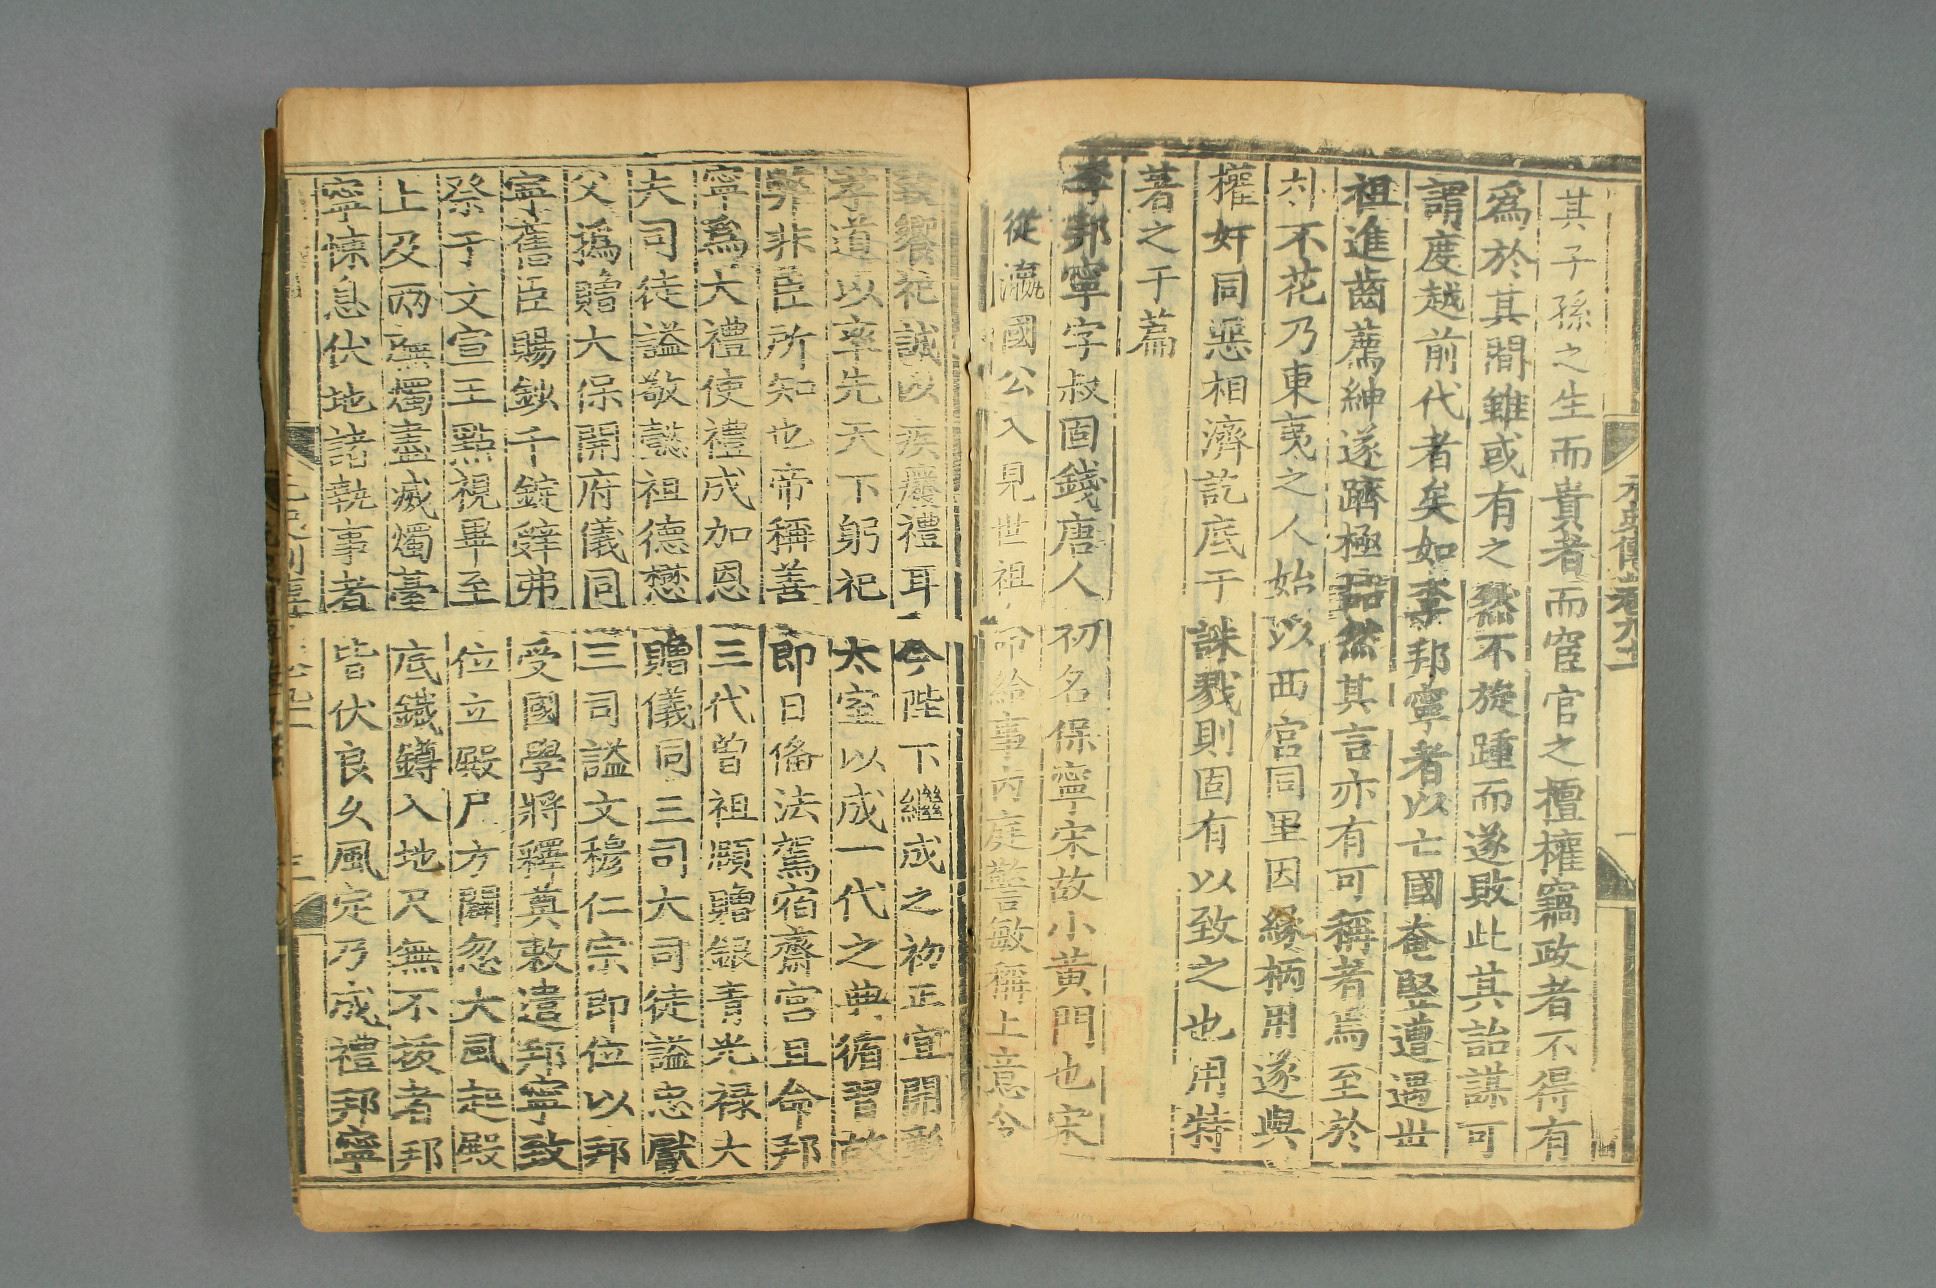 元史傳卷九十一 一
其子孫之生而貴者而宦官之擅權竊政者不得有
爲於其間雖或有之然不旋踵而遂敗此其詒謀可
謂度越前代者矣如李邦寧者以亡國奄豎遭遇世
祖進齒薦紳遂躋極品然其言亦有可稱者焉至於
朴不花乃東夷之人始以西宮同里因緣柄用遂與
權奸同惡相濟訖底于誅戮則固有以致之也用特
著之于篇
李邦寧字叔固錢唐人初名保寧宋故小黃門也宋
從瀛國公入見世祖命給事內庭警敏稱上意令
致饗祀誠以疾廢禮耳今陛下繼成之初正宜開彰
孝道以率先天下躬祀太室以成一代之典循習故
弊非臣所知也帝稱善即日備法駕宿齋宮且命邦
寧爲大禮使禮成加恩三代曾祖頤贈銀青光祿大
夫司徒謚敬懿祖德懋贈儀同三司大司徒謚忠獻
父撝贈大保開府儀同三司謚文穆仁宗即位以邦
寧舊臣賜鈔千錠辭弗受國學將釋奠敕遣邦寧致
祭于文宣王點視畢至位立殿戶方闢忽大風起殿
上及兩廡燭盡滅燭臺底鐵鐏入地尺無不拔者邦
寧悚息伏地諸執事者皆伏良久風定乃成禮邦寧